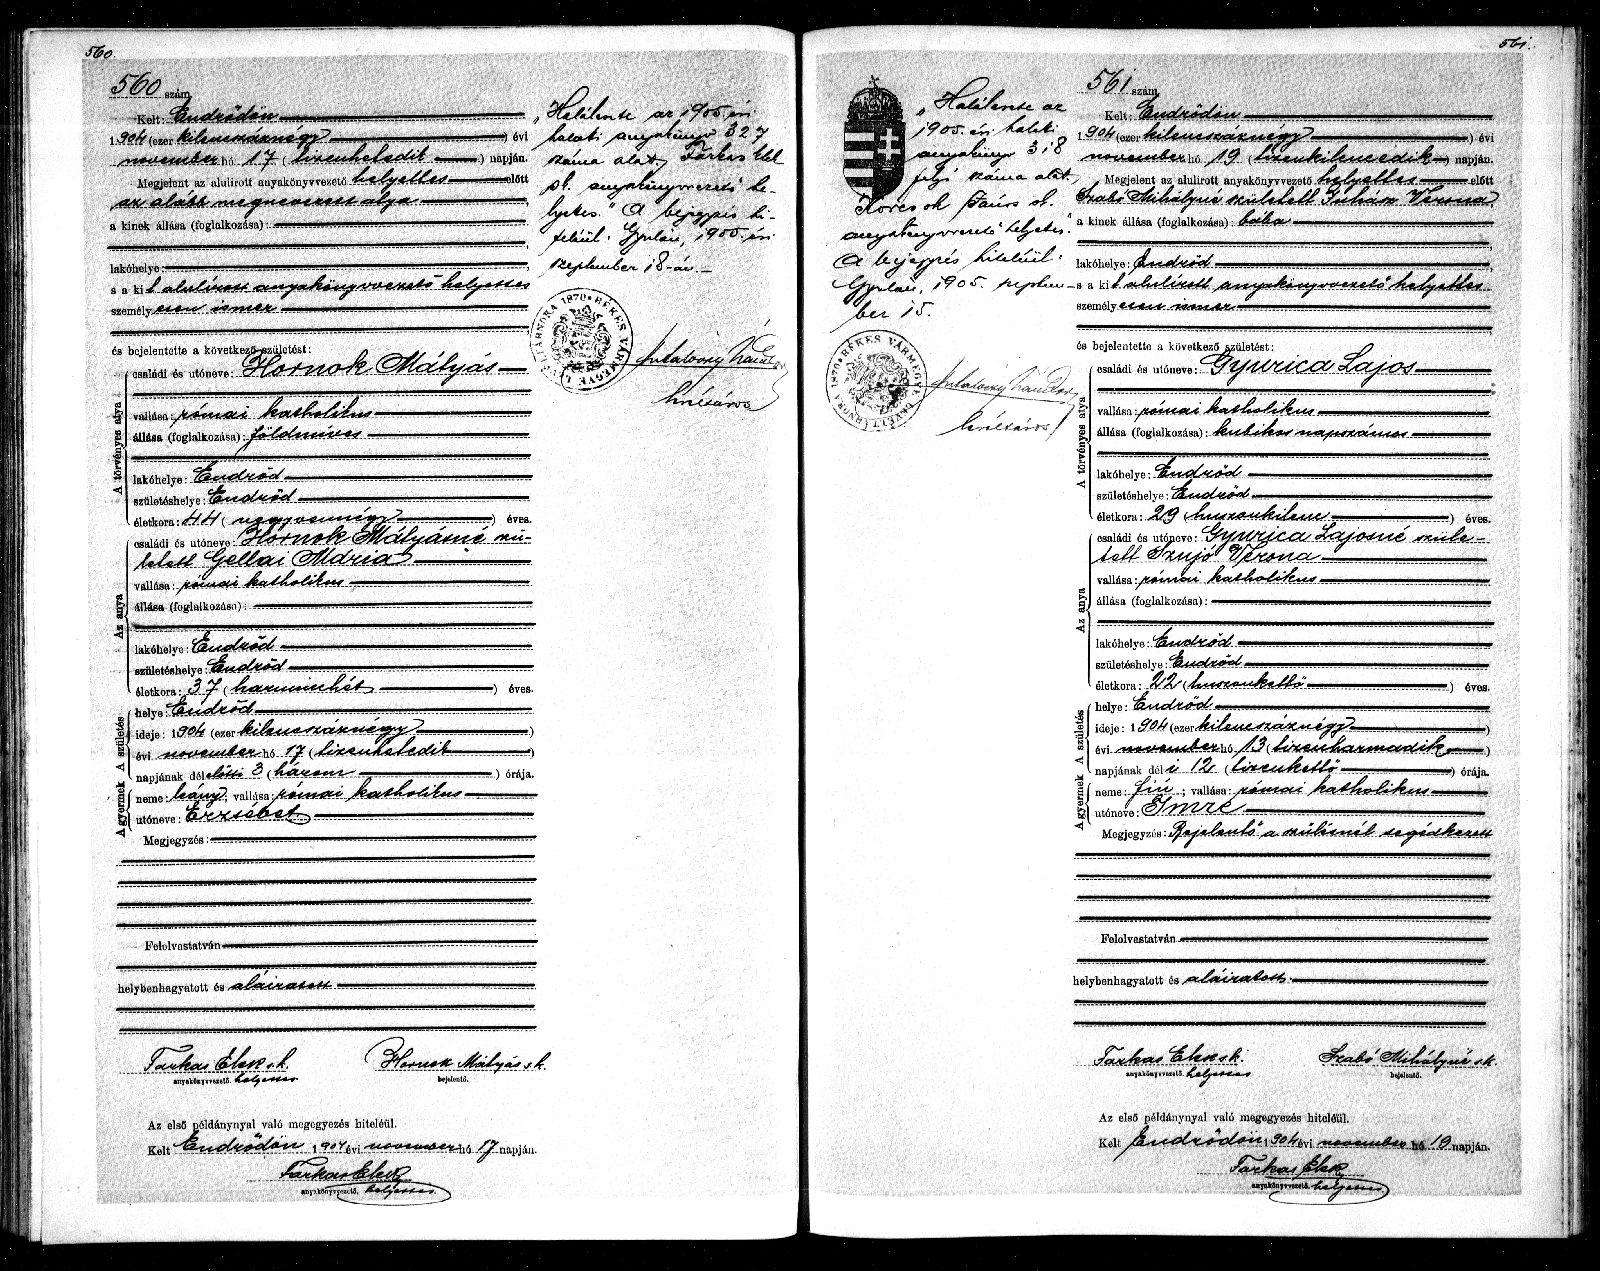 560.
560 szám
Kelt: Endrődön
1904 (ezer kilencszáznégy) évi
november hó 17 (tizenhetedik) napján.
Megjelent az alulirott anyakönyvvezető helyettes előtt
az alább megnevezett atya
a kinek állása (foglalkozása):
lakóhelye:
s a kit alulirott anyakönyvvezető helyettes
személyesen ismer
és bejelentette a következő születést:
A törvényes atya
családi és utóneve: Hornok Mátyás
vallása: római katholikus
állása (foglalkozása): földmives
lakóhelye: Endrőd
születéshelye: Endrőd
életkora: 44 (negyvennégy) éves.
Az anya
családi és utóneve: Hornok Mátyásné szü-
letett Gellai Mária
vallása: római katholikus
állása (foglalkozása):
lakóhelye: Endrőd
születéshelye: Endrőd
életkora: 37 (harminchét) éves.
A születés
helye: Endrőd
ideje: 1904 (ezer kilencszáznégy)
évi november hó 17 (tizenhetedik)
napjának délelőtti 3 (három) órája.
A gyermek
neme: leány; vallása: római katholikus
utóneve: Erzsébet
Megjegyzés:
Felolvastatván
helybenhagyatott és aláiratott
Farkas Elek sk. Hornok Mátyás s.k.
anyakönyvvezető. helyettes bejelentő.
Az első példánynyal való megegyezés hiteléül.
Kelt Endrődön 1904 évi november hó 17 napján.
Farkas Elek
anyakönyvvezető. helyettes
"Haláleste az 1905. évi
halati anyakönyv 327
száma alatt, Farkas Elek
sk. anyakönyvvezető he-
lyettes." A bejegyzés hi-
teléül. Gyulán, 1905. évi
szeptember 18-án.
BÉKES VÁRMEGYE LEVÉLTÁRNOKA 1870
levéltáros
561.
561 szám
"Haláleste az
1905. évi halati
anyakönyv 318
folyó száma alatt,
sk.
anyakönyvvezető helyettes."
A bejegyzés hiteléül.
Gyulán, 1905. szeptem-
ber 15.
BÉKES VÁRMEGYE LEVÉLTÁRNOKA 1870
levéltáros
Kelt: Endrődön
1904 (ezer kilencszáznégy) évi
november hó 19 (tizenkilencedik) napján.
Megjelent az alulirott anyakönyvvezető helyettes előtt
Szabó Mihályné született Juhász Verona
a kinek állása (foglalkozása): bába
lakóhelye: Endrőd
s a kit alulirott anyakönyvvezető helyettes
személyesen ismer
és bejelentette a következő születést:
A törvényes atya
családi és utóneve: Gyurica Lajos
vallása: római katholikus
állása (foglalkozása): kubikos napszámos
lakóhelye: Endrőd
születéshelye: Endrőd
életkora: 29 (huszonkilenc) éves.
Az anya
családi és utóneve: Gyurica Lajosné szüle-
tett Szujó Verona
vallása: római katholikus
állása (foglalkozása):
lakóhelye: Endrőd
születéshelye: Endrőd
életkora: 22 (huszonkettő) éves.
A születés
helye: Endrőd
ideje: 1904 (ezer kilencszáznégy)
évi november hó 13 (tizenharmadik)
napjának déli 12 (tizenkettő) órája.
A gyermek
neme: fiú; vallása: római katholikus
utóneve: Imre
Megjegyzés: Bejelentő a szülésnél segédkezett
Felolvastatván
helybenhagyatott és aláiratott.
Farkas Elek sk. Szabó Mihályné s.k.
anyakönyvvezető. helyettes bejelentő.
Az első példánynyal való megegyezés hiteléül.
Kelt Endrődön 1904 évi november hó 19 napján.
Farkas Elek
anyakönyvvezető. helyettes